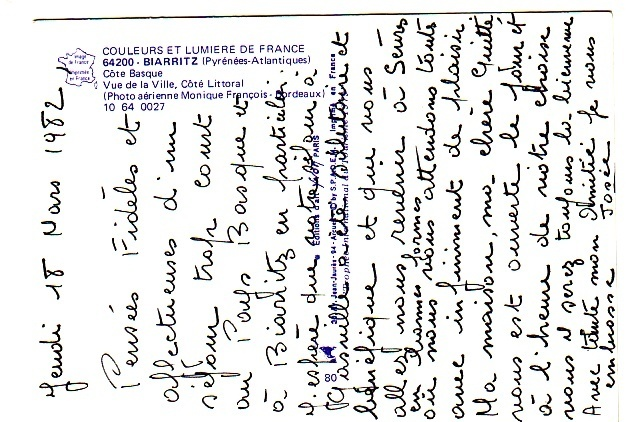 COULEURS ET LUMIERE DE FRANCE
64200 - BIARRITZ (Pyrénées-Atlantiques)
Côte Basque
Vue de la Ville, Côté Littoral
(Photo aérienne Monique François - Bordeaux)
10 64 0027
Jeudi 18 Mars 1982
Pensées Fidèles et
affectueuses d'un
séjour trop court
au Pays Basque et
à Biarritz en particulier.
J'espère que votre séjour à
a été salutaire et
bénéfique et que vous
allez nous revenir à Sens
en bonnes formes
où nous vous attendons tous
avec infiniment de plaisir
Ma maison, ma chère
vous est ouverte le jour et
à l'heure de votre choix
vous y serez toujours la bienvenue
Avec toute mon Amitié je vous
embrasse Josée
80